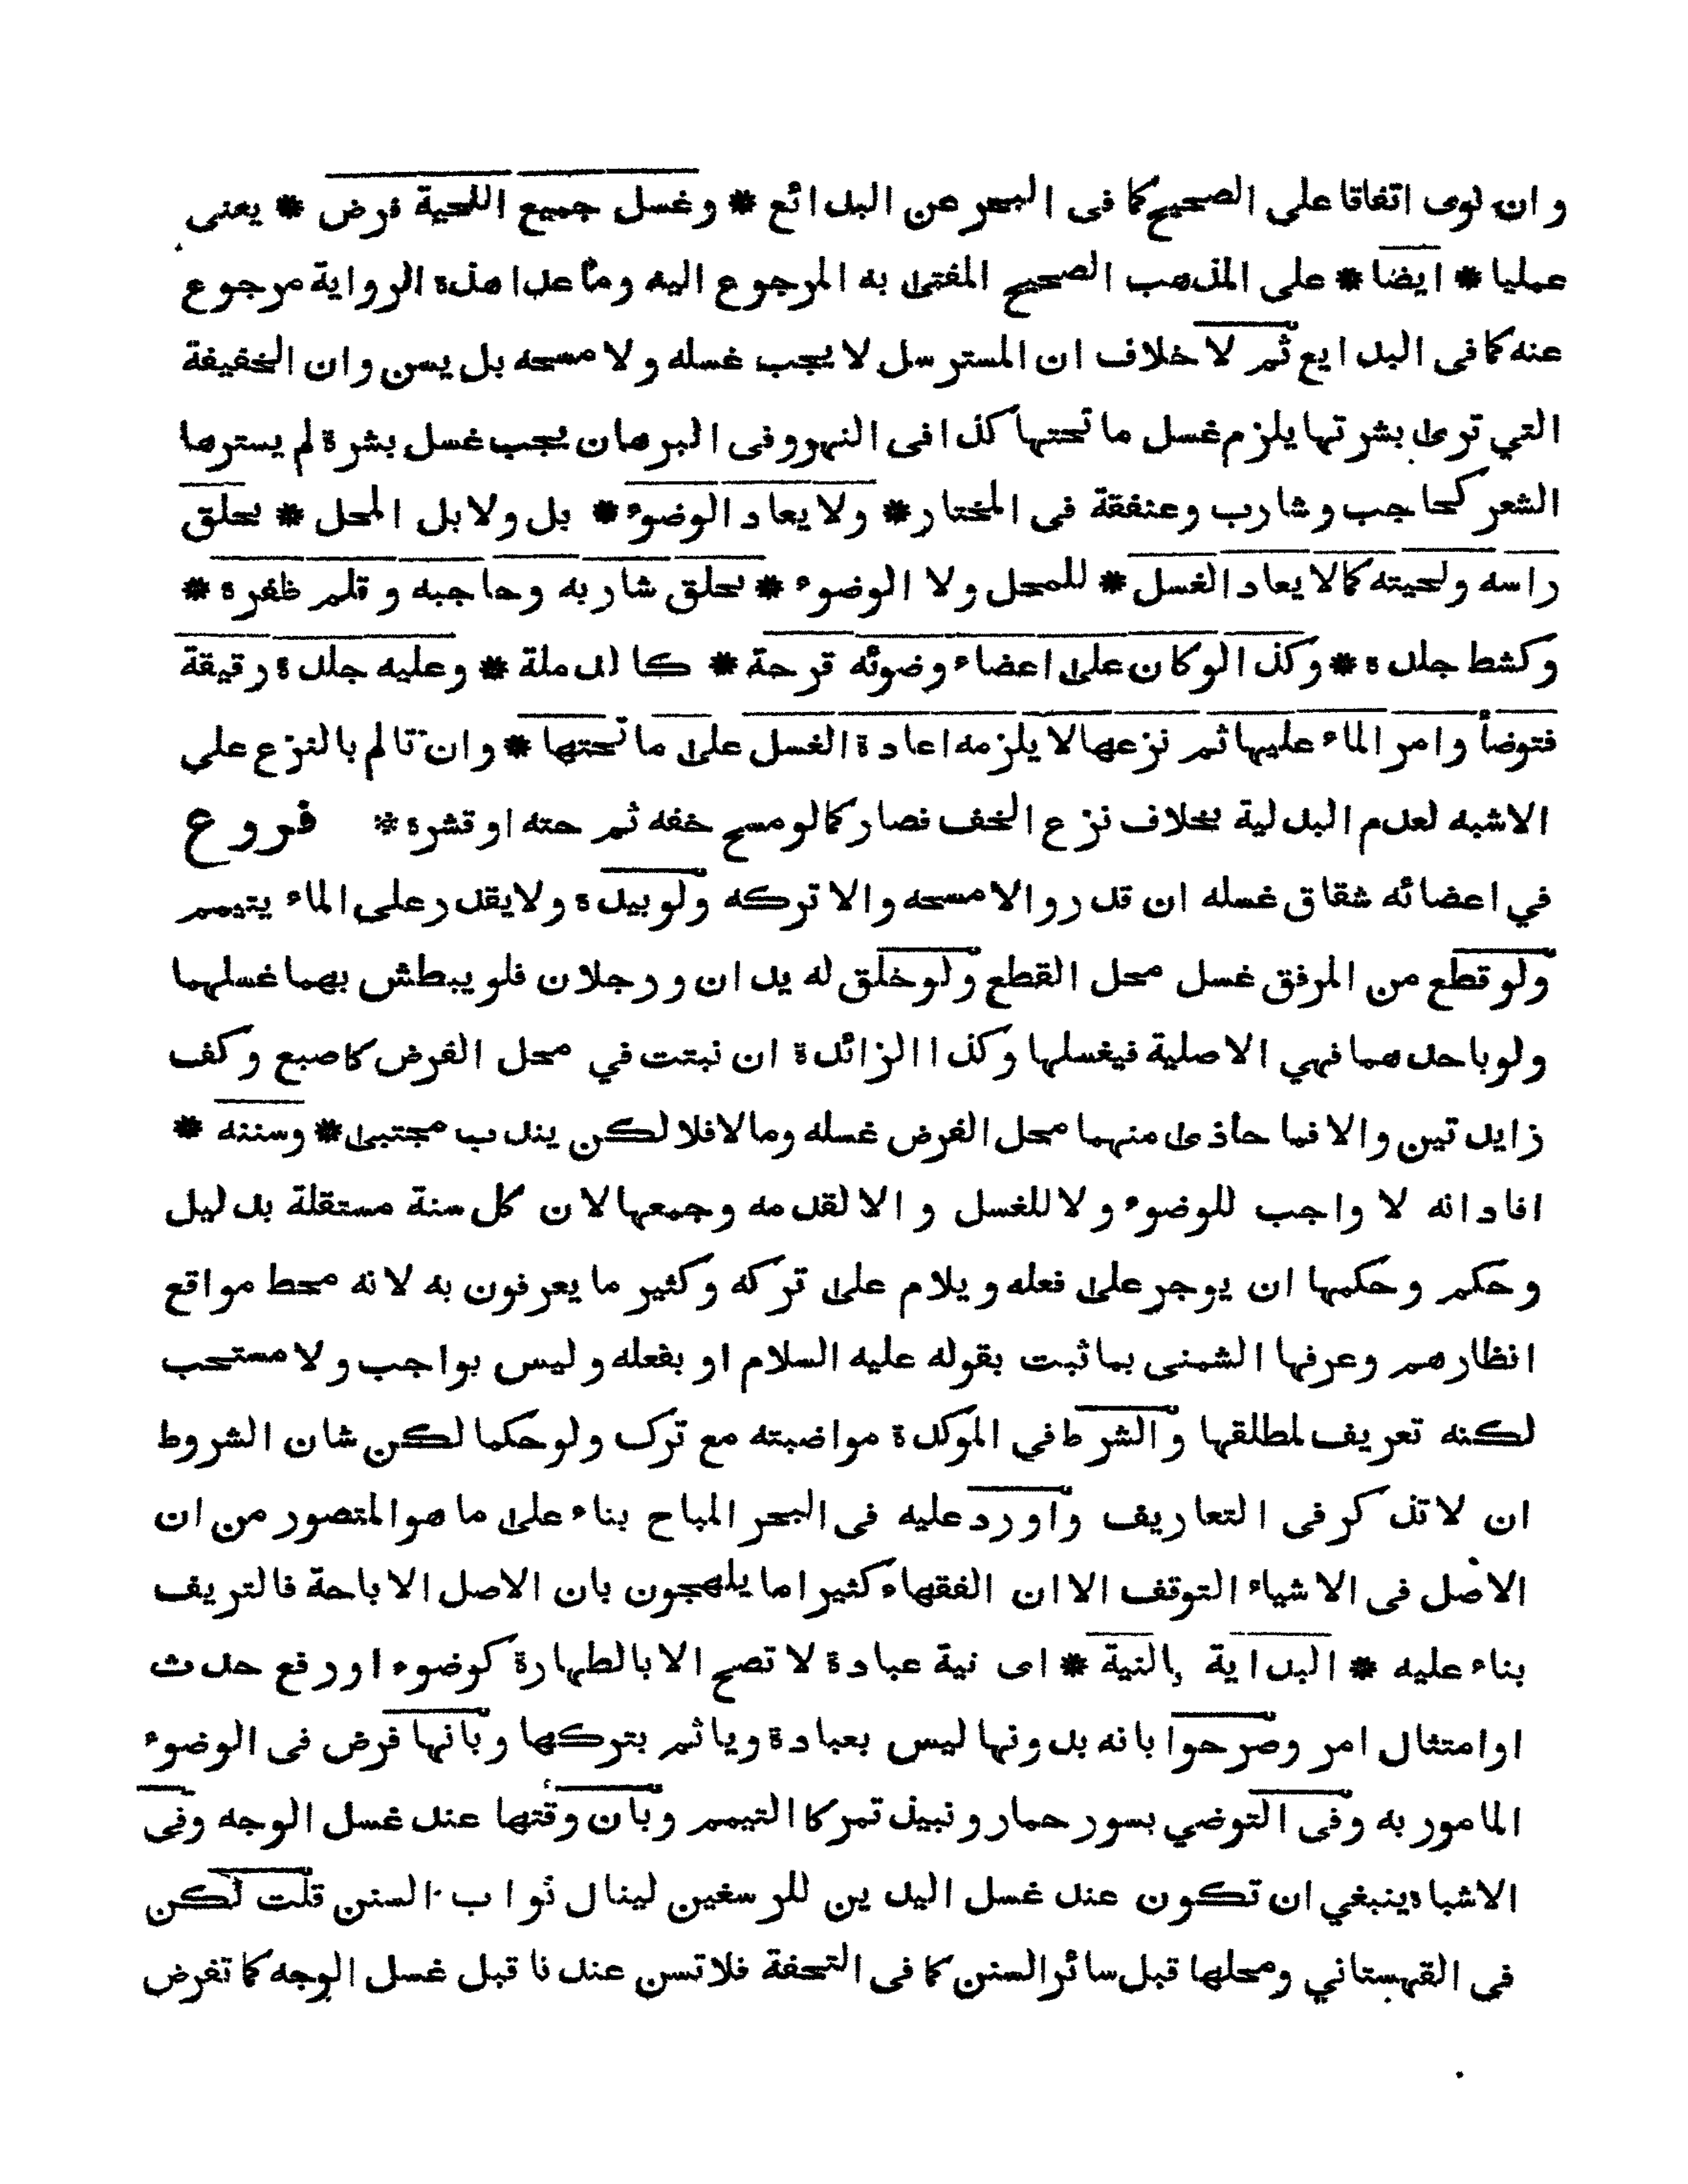 وان لوى اتفاقا على الصحيح كما فى البحر عن البدائع * وغسل جميع اللحية فرض * يعنى
عمليا * ايضا * على المذهب الصحيح المفتى به المرجوع اليه وما عدا هذه الرواية مرجوع
عنه كما فى البدايع ثم لا خلاف ان المسترسل لا يجب غسله ولا مسحه بل يسن وان الخفيفة
التي ترى بشرتها يلزم غسل ما تحتها كذا فى النهر وفى البرهان يجب غسل بشرة لم يسترها
الشعر كحاجب وشارب وعنفقة فى المختار * ولا يعاد الوضوء * بل ولا بل المحل * بحلق
راسه ولحيته كما لا يعاد الغسل * للمحل ولا الوضوء * بحلق شاربه وحاجبه وقلم ظفره *
وكشط جلده * وكذا لو كان على اعضاء وضوئه قرحة * كالدملة * وعليه جلدة رقيقة
فتوضأ وامر الماء عليها ثم نزعها لا يلزمه اعادة الغسل على ما تحتها * وان تالم بالنزع علي
الاشبه لعدم البدلية بخلاف نزع الخف فصار كما لو مسح خفه ثم حته او قشره * فروع
في اعضائه شقاق غسله ان قدر والا مسحه والا تركه ولو بيده ولا يقدر على الماء يتيمم
ولو قطع من المرفق غسل محل القطع ولو خلق له يدان ورجلان فلو يبطش بهما غسلهما
ولو باحدهما فهي الاصلية فيغسلها وكذا الزائدة ان نبتت في محل الفرض كاصبع وكف
زايدتين والا فما حاذى منهما محل الفرض غسله وما لا فلا لكن يندب مجتبى * وسننه *
افاد انه لا واجب للوضوء ولا للغسل و الا لقدمه وجمعها لان كل سنة مستقلة بدليل
وحكم وحكمها ان يوجر على فعله ويلام على تركه وكثير ما يعرفون به لانه محط مواقع
انظارهم وعرفها الشمنى بما ثبت بقوله عليه السلام او بفعله وليس بواجب ولا مستحب
لكنه تعريف لمطلقها والشرط في الموكدة مواضبته مع ترك ولو حكما لكن شان الشروط
ان لا تذكر فى التعاريف واورد عليه فى البحر المباح بناء على ما هو المتصور من ان
الاصل فى الاشياء التوقف الا ان الفقهاء كثيرا ما يلهجون بان الاصل الاباحة فالتريف
بناء عليه * البداية بالنية * اى نية عبادة لا تصح الا بالطهارة كوضوء اور فع حدث
او امتثال امر وصرحوا بانه بدونها ليس بعبادة وياثم بتركها وبانها فرض فى الوضوء
المامور به وفى التوضي بسور حمار ونبيذ تمر كا التيمم وبان وقتها عند غسل الوجه وفى
الاشباه ينبغي ان تكون عند غسل اليدين للرسغين لينال ثواب السنن قلت لكن
فى القهستاني ومحلها قبل سائر السنن كما فى التحفة فلا تسن عندنا قبل غسل الوجه كما تفرض